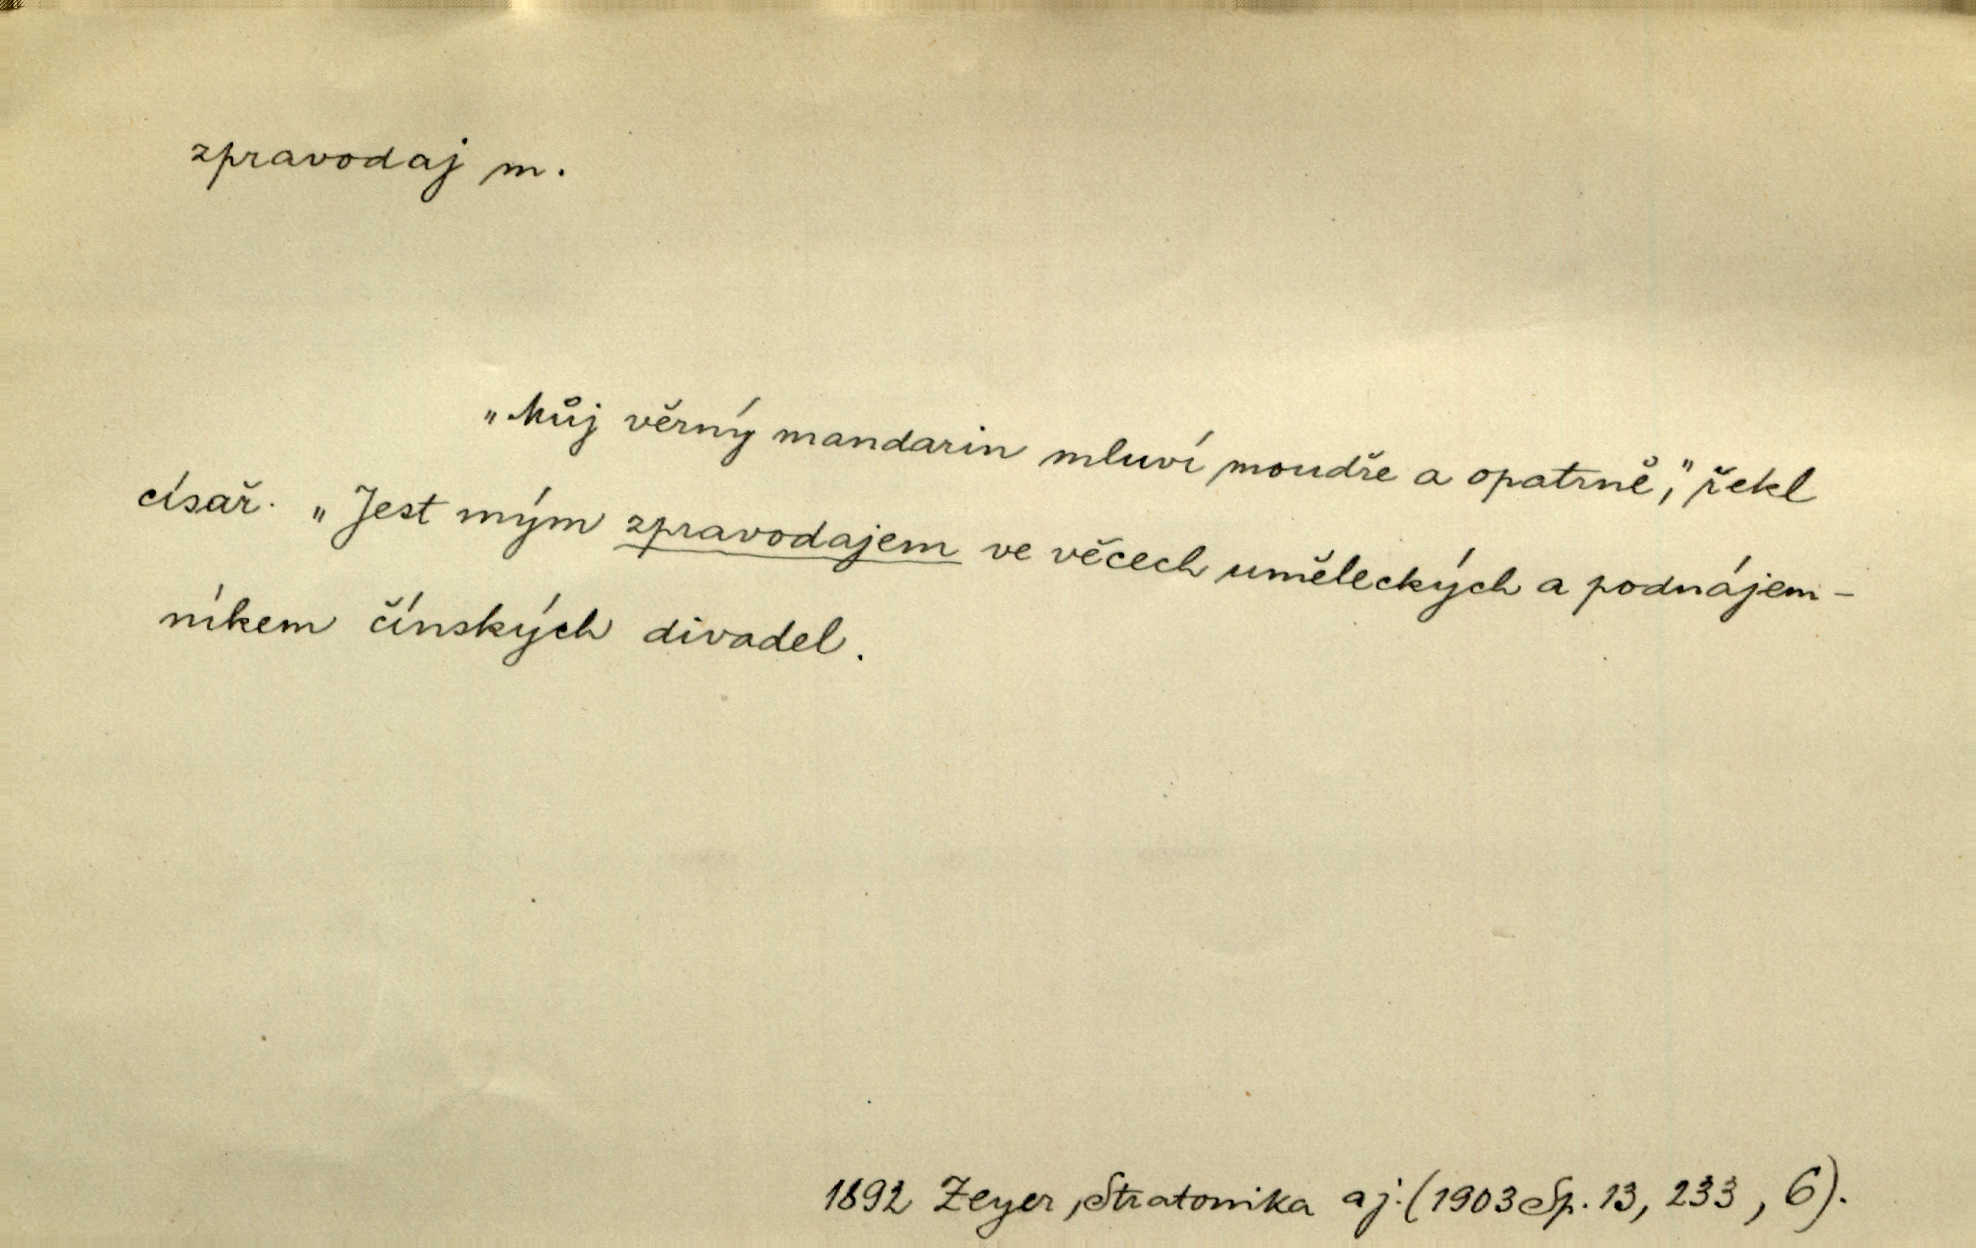 zpravodaj m.
„Můj věrný mandarin mluví moudře a opatrně," řekl
císař. „Jest mým zpravodajem ve věcech uměleckých a podnájem-
níkem čínských divadel.
1892 Zeyer, Stratonika aj. (1903 Sp. 13, 233, 6).